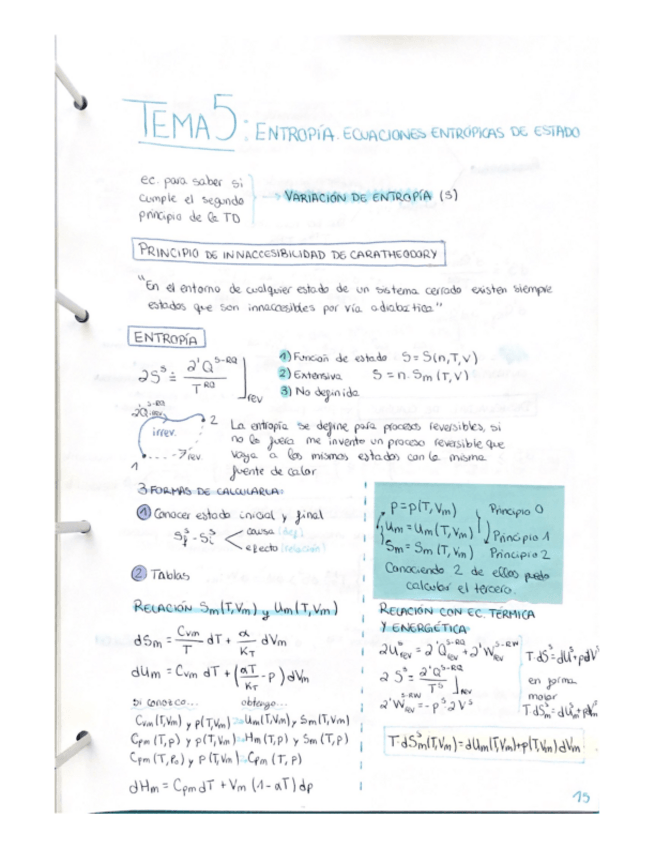 TEMA 5: ENTROPÍA. ECUACIONES ENTRÓPICAS DE ESTADO
ec. para saber si
cumple el segundo
principio de la TD
VARIACIÓN DE ENTROPÍA (S)
PRINCIPIO DE INNACCESIBILIDAD DE CARATHEODORY
"En el entorno de cualquier estado de un sistema cerrado existen siempre
estados que son innaccesibles por vía adiabática."
ENTROPÍA
∂S^s ≐ ∂'Q^{S-RQ} / T^{RQ} ]_rev
1) Función de estado S = S(n,T,V)
2) Extensiva S = n·Sm (T,V)
3) No definida
∂'Q irrev. S-RQ
irrev.
2
1
rev.
La entropía se define para procesos reversibles, si
no lo fuera me invento un proceso reversible que
vaya a los mismos estados con la misma
fuente de calor
3 FORMAS DE CALCULARLA:
1 Conocer estado inicial y final
S_f^s - S_i^s < causa
efecto (relación)
2 Tablas
RELACIÓN Sm(T,Vm) y Um(T,Vm)
dSm = Cvm/T dT + α/K_T dVm
dUm = Cvm dT + (αT/K_T - p) dVm
si conozco... obtengo...
Cvm(T,Vm) y p(T,Vm) → Um(T,Vm) y Sm(T,Vm)
Cpm(T,p) y p(T,Vm) → Hm(T,p) y Sm(T,p)
Cpm(T,p₀) y p(T,Vm) → Cpm(T,p)
dHm = Cpm dT + Vm (1-αT) dp
p = p(T,Vm) Principio 0
Um = Um(T,Vm) Principio 1
Sm = Sm(T,Vm) Principio 2
Conociendo 2 de ellos puedo
calcular el tercero.
RELACIÓN CON EC. TÉRMICA
Y ENERGÉTICA
∂U^s_rev = ∂'Q^{S-RQ}_rev + ∂'W^{S-RW}_rev
∂S^s = ∂'Q^{S-RQ} / T^s ]_rev
∂'W^{S-RW}_rev = -p^s ∂V^s
T·dS^s = dU^s + pdV^s
en forma
molar
T·dS^s_m = dU^s_m + pdV^s_m
T dS^s_m(T,Vm) = dUm(T,Vm) + p(T,Vm) dVm
15